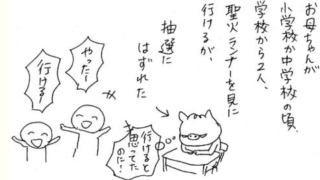 お母ちゃんが
小学校か中学校の頃、
学校から2人、
聖火ランナーを見に
行けるが、
抽選に
はずれた
行けると
思ってた
のに!
やったー!
行ける!